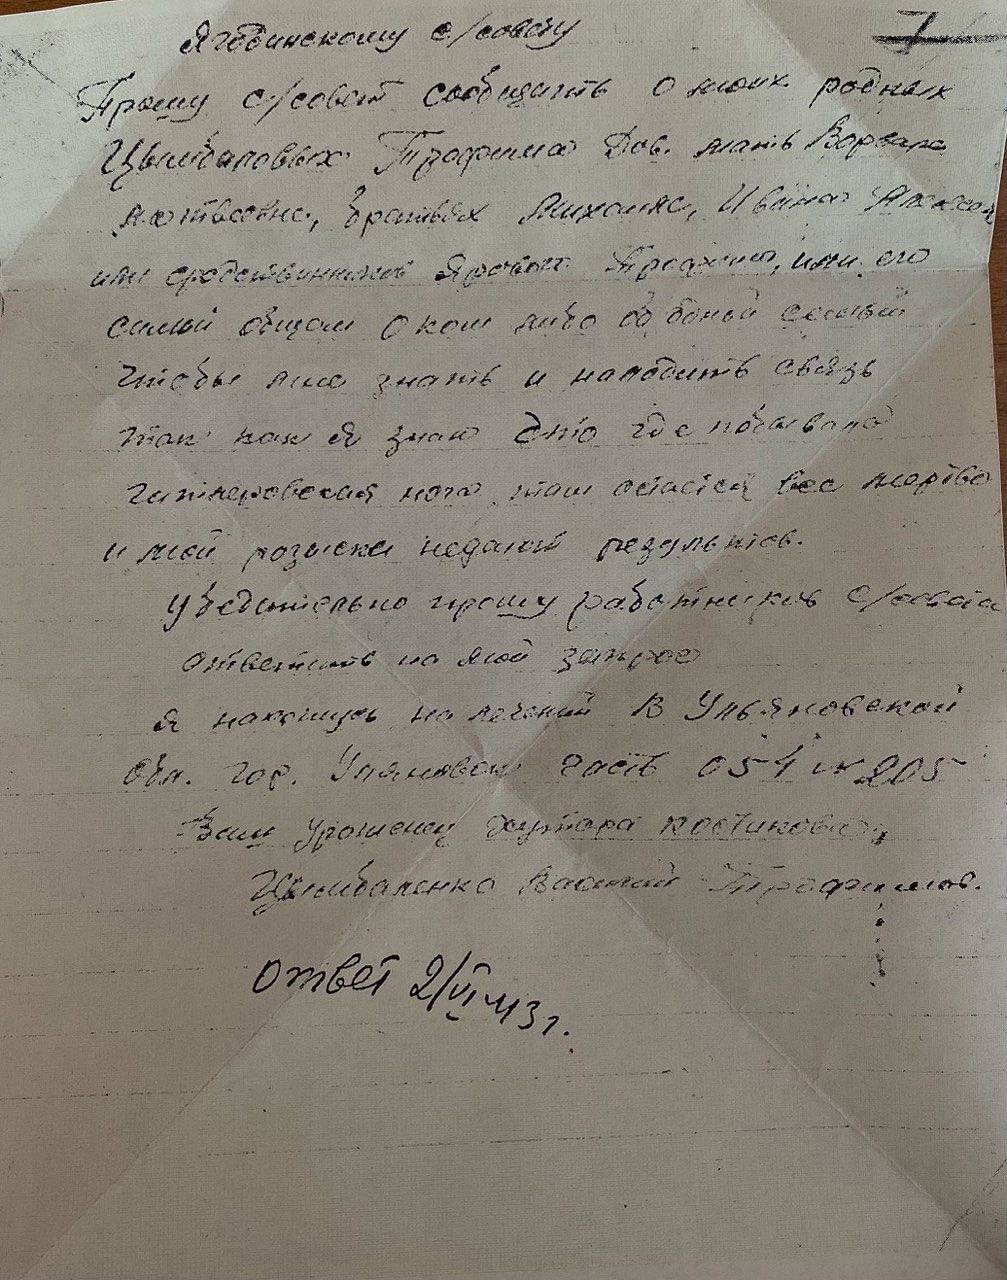 Ягодинскому с/совету
Прошу с/совет сообщить о моих родных
Цымбаловых Трофима Дав. мать Варвара
братьях Михаила, Ивана Алексея
или сродственников Яровых Трофима, или его
о ком либо
чтобы мне знать и наладить связь
так как я знаю что где побывала
гитлеровская нога там остается все мертво
и мои розыски недают результатов.
Убедительно прошу работников с/совета
ответить на мой запрос
я нахожусь на лечений в Ульяновской
обл. гор. Уляновск часть 0541 205
Ваш урожениц хутора Костикова
Цымбаленко Василий Трофимов.
ответ 2/VI 43 г.